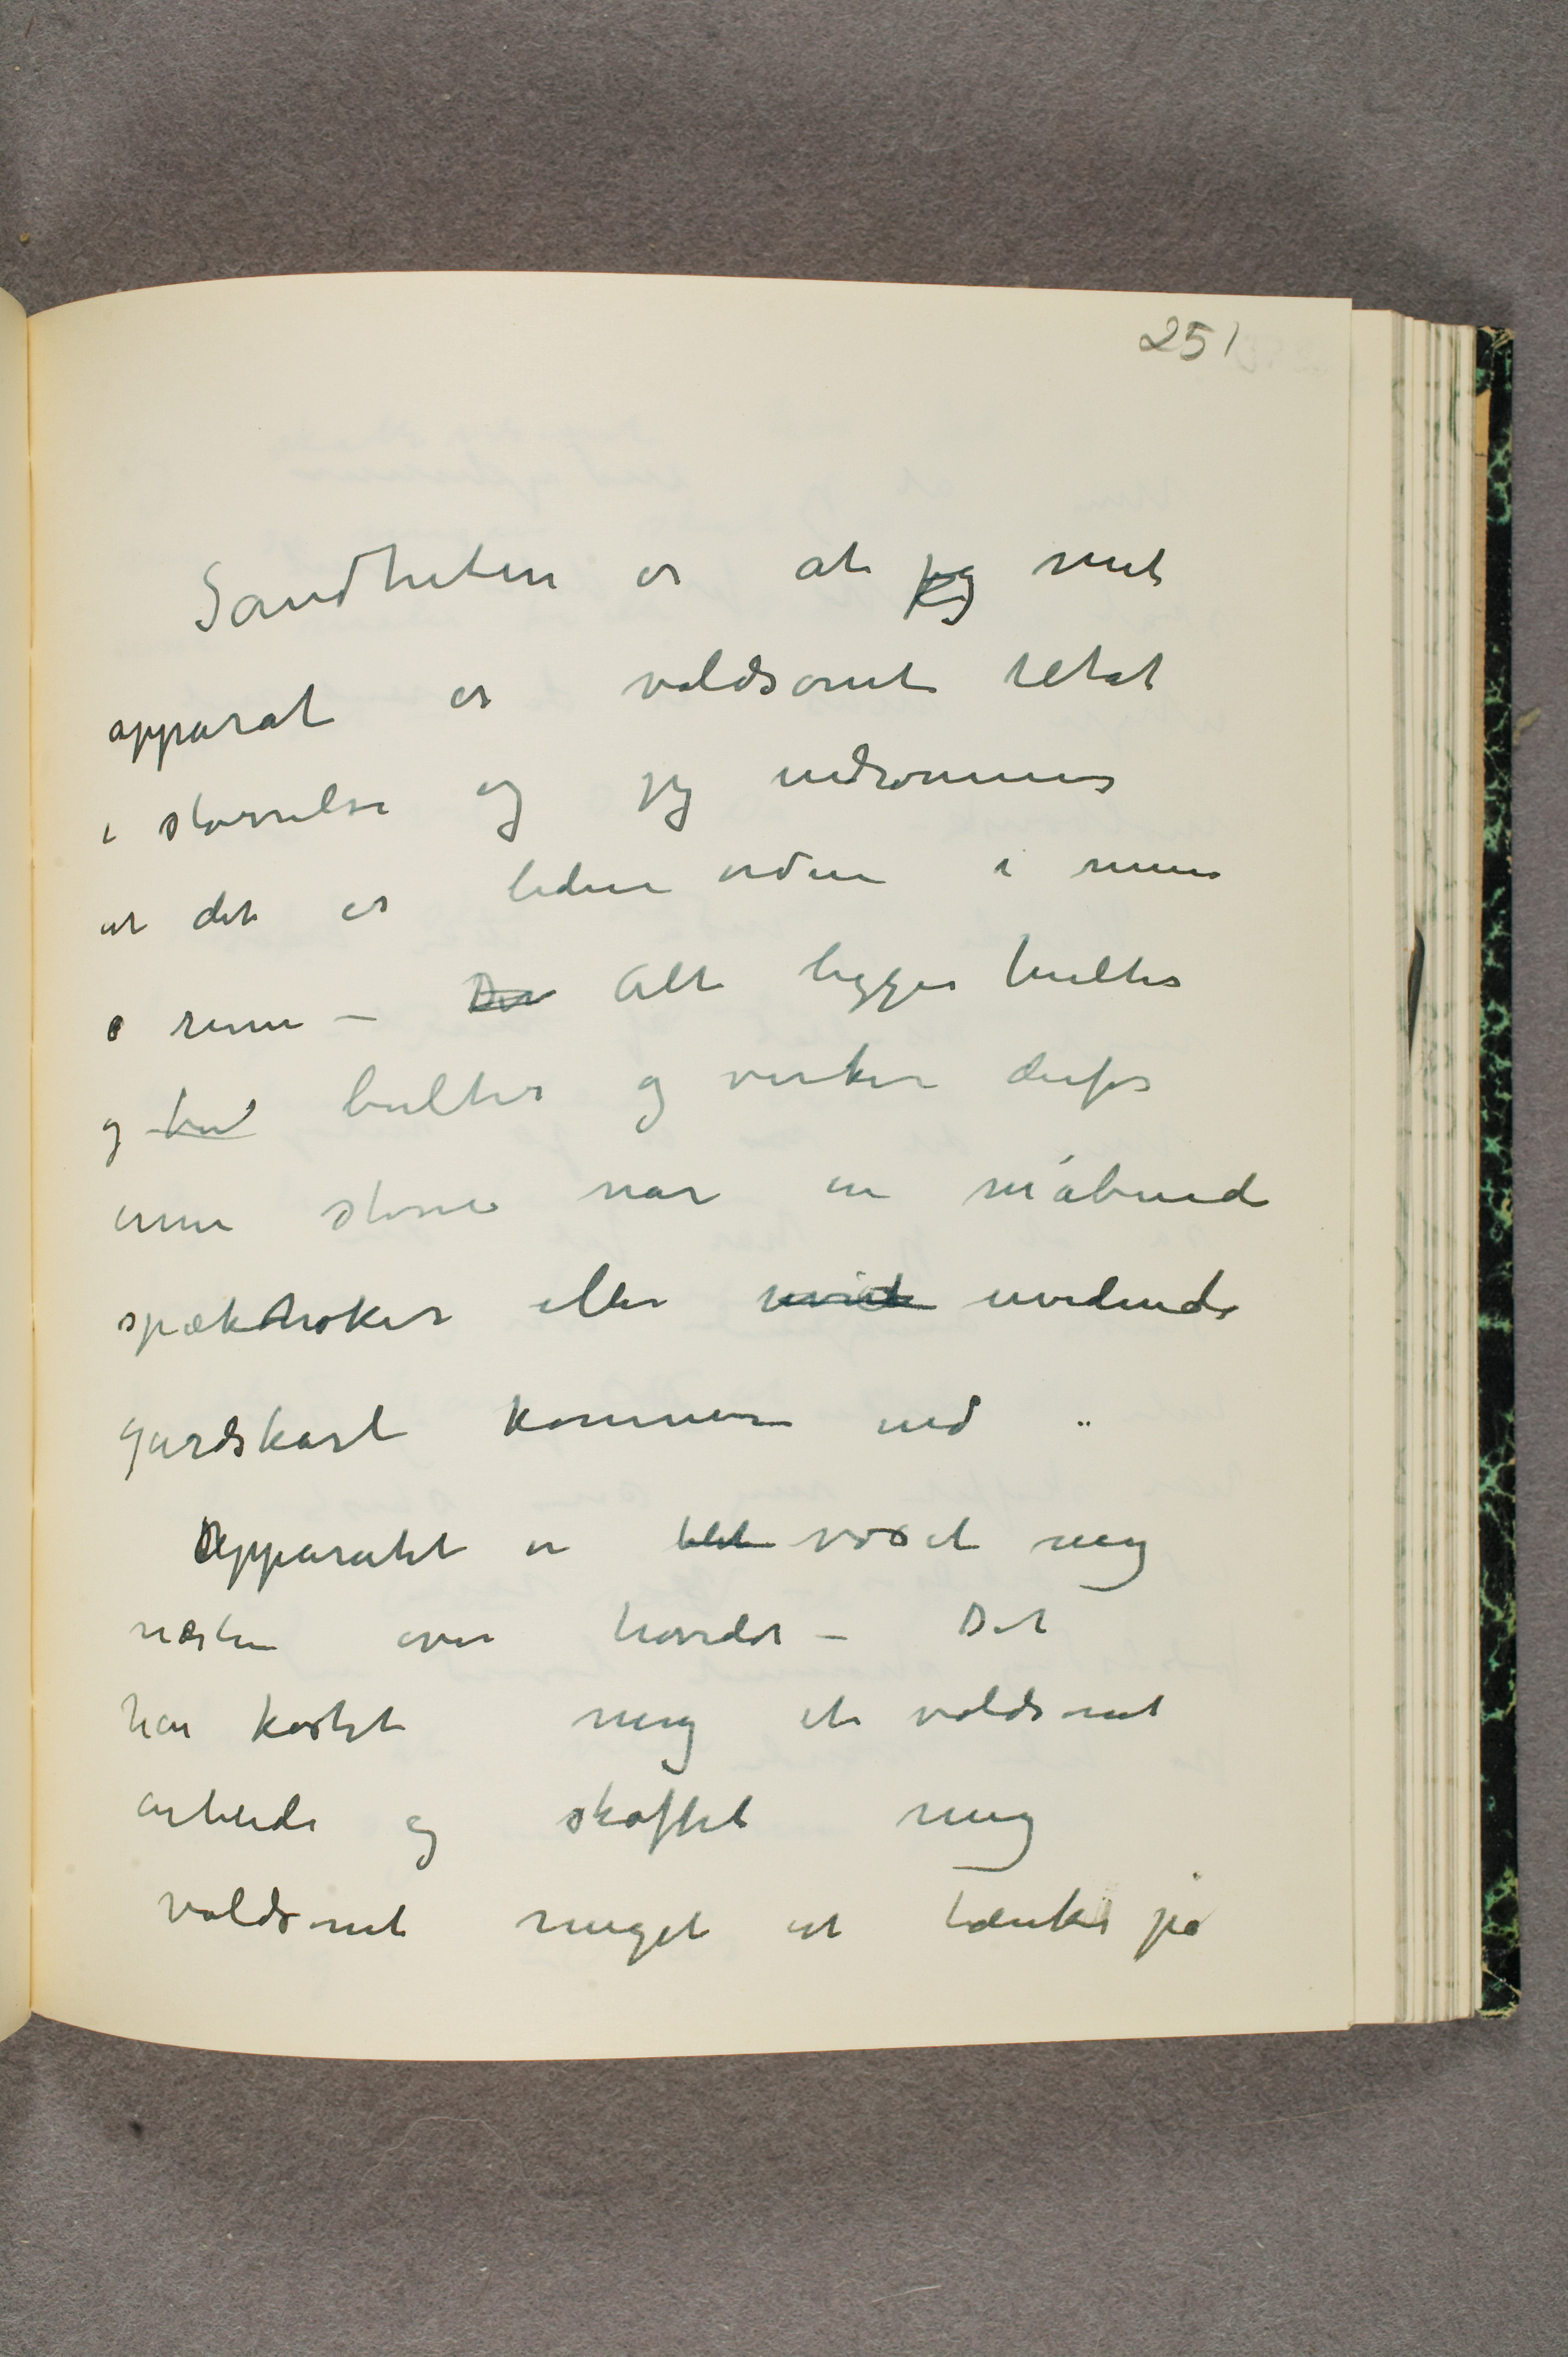 251
Sandheten er at jeg mit
apparat er voldsomt tiltat
i størrelse og jeg indrømmer
at det er liden orden i mine
rum – Der Alt ligger hulter
og bul bulter og virker derfor
ennu større når en nåbund
spækhøker eller uvide uvidende
gårdskarl kommer ind ..
Apparatet er blet vokset mig
næsten over hovedet – Det
har kostet mig et voldsomt
arbeide og skaffet mig
voldsomt meget at tænke på